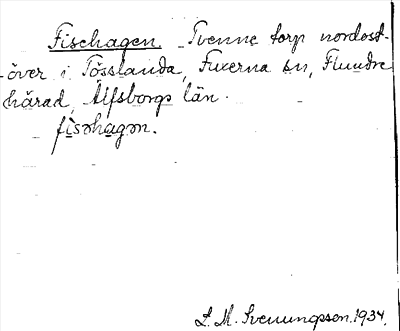 Fischagen. Tvenne torp nordost-
över i Tösslanda, Fuxerna sn, Flundre
härad, Älfsborgs län.
fisəhagən.
L. M. Svenungsson. 1934.